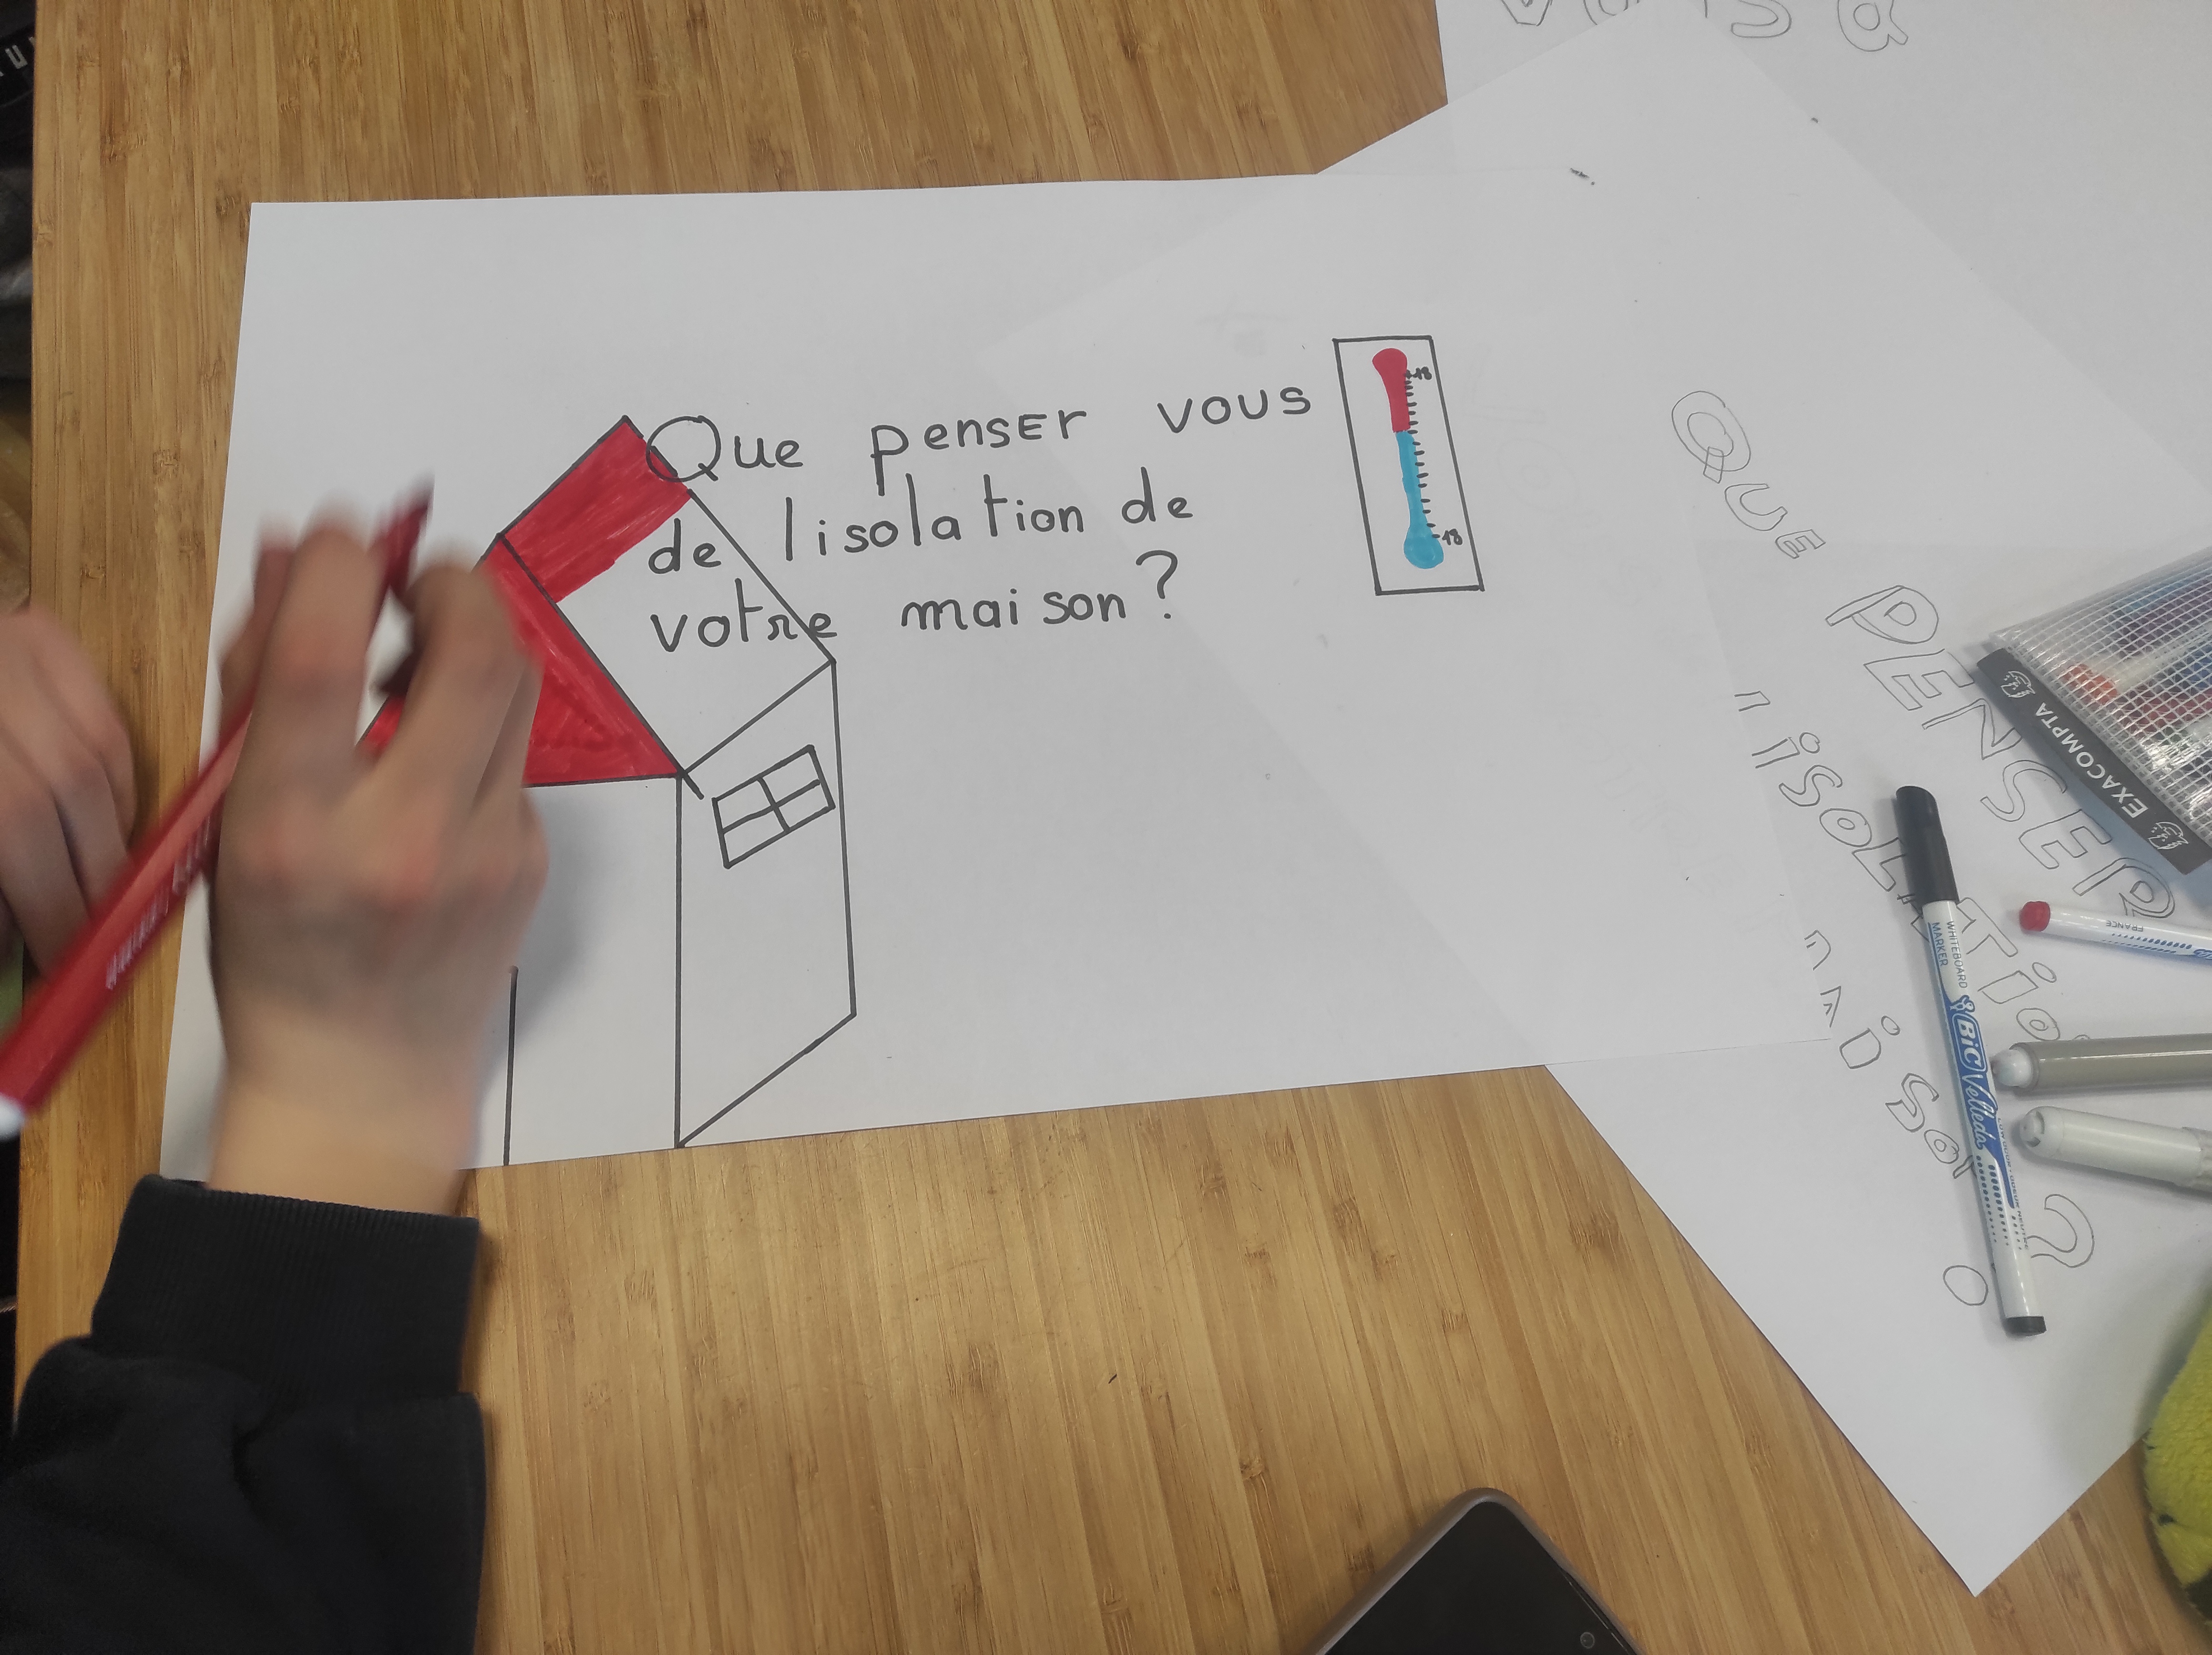 Que penser vous
de lisolation de
votre maison?
+18
-18
QUE PENSER
isolATioN
mAiSoN ?
EXACOMPTA
WHITEBOARD
MARKER
BiC Velleda
FRANCE